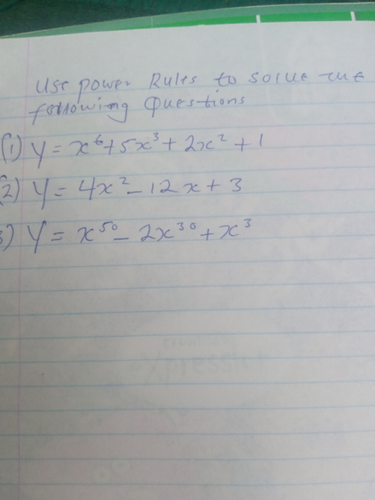 Use power Rules to solve the
following Questions
(1) y = x⁶ + 5x³ + 2x² + 1
(2) y = 4x² - 12x + 3
3) y = x⁵⁰ - 2x³⁰ + x³